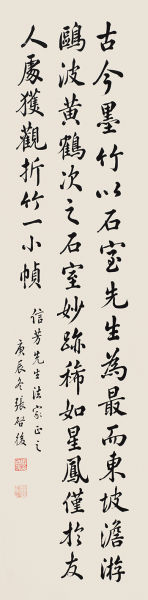 古今墨竹以石室先生為最而東坡澹游
鷗波黃鶴次之石室妙跡稀如星鳳僅於友
人處獲觀折竹一小幀
信芳先生法家正之
庚辰冬張啓後